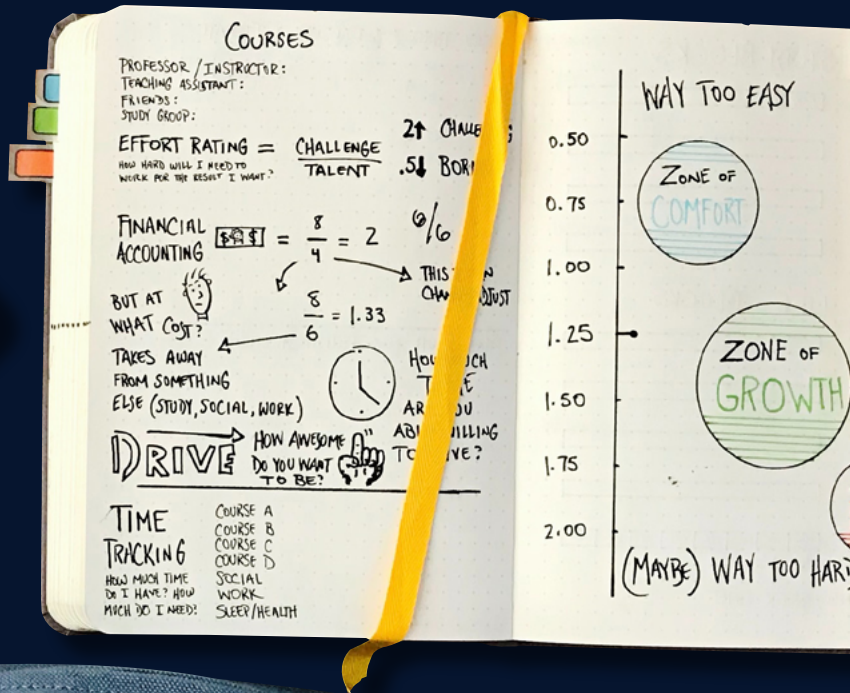 COURSES
PROFESSOR / INSTRUCTOR:
TEACHING ASSISTANT:
FRIENDS:
STUDY GROUP:
EFFORT RATING = CHALLENGE / TALENT
HOW HARD WILL I NEED TO
WORK FOR THE RESULT I WANT?
2↑
.5↓
FINANCIAL
ACCOUNTING
$ $ = 8/4 = 2
6/6
THIS
BUT AT
WHAT COST?
8/6 = 1.33
TAKES AWAY
FROM SOMETHING
ELSE (STUDY, SOCIAL, WORK)
DRIVE
HOW AWESOME
DO YOU WANT
TO BE?
TIME
TRACKING
HOW MUCH TIME
DO I HAVE? HOW
MUCH DO I NEED?
COURSE A
COURSE B
COURSE C
COURSE D
SOCIAL
WORK
SLEEP/HEALTH
WAY TOO EASY
0.50
0.75
1.00
1.25
1.50
1.75
2.00
ZONE OF
COMFORT
ZONE OF
GROWTH
(MAYBE) WAY TOO HARD